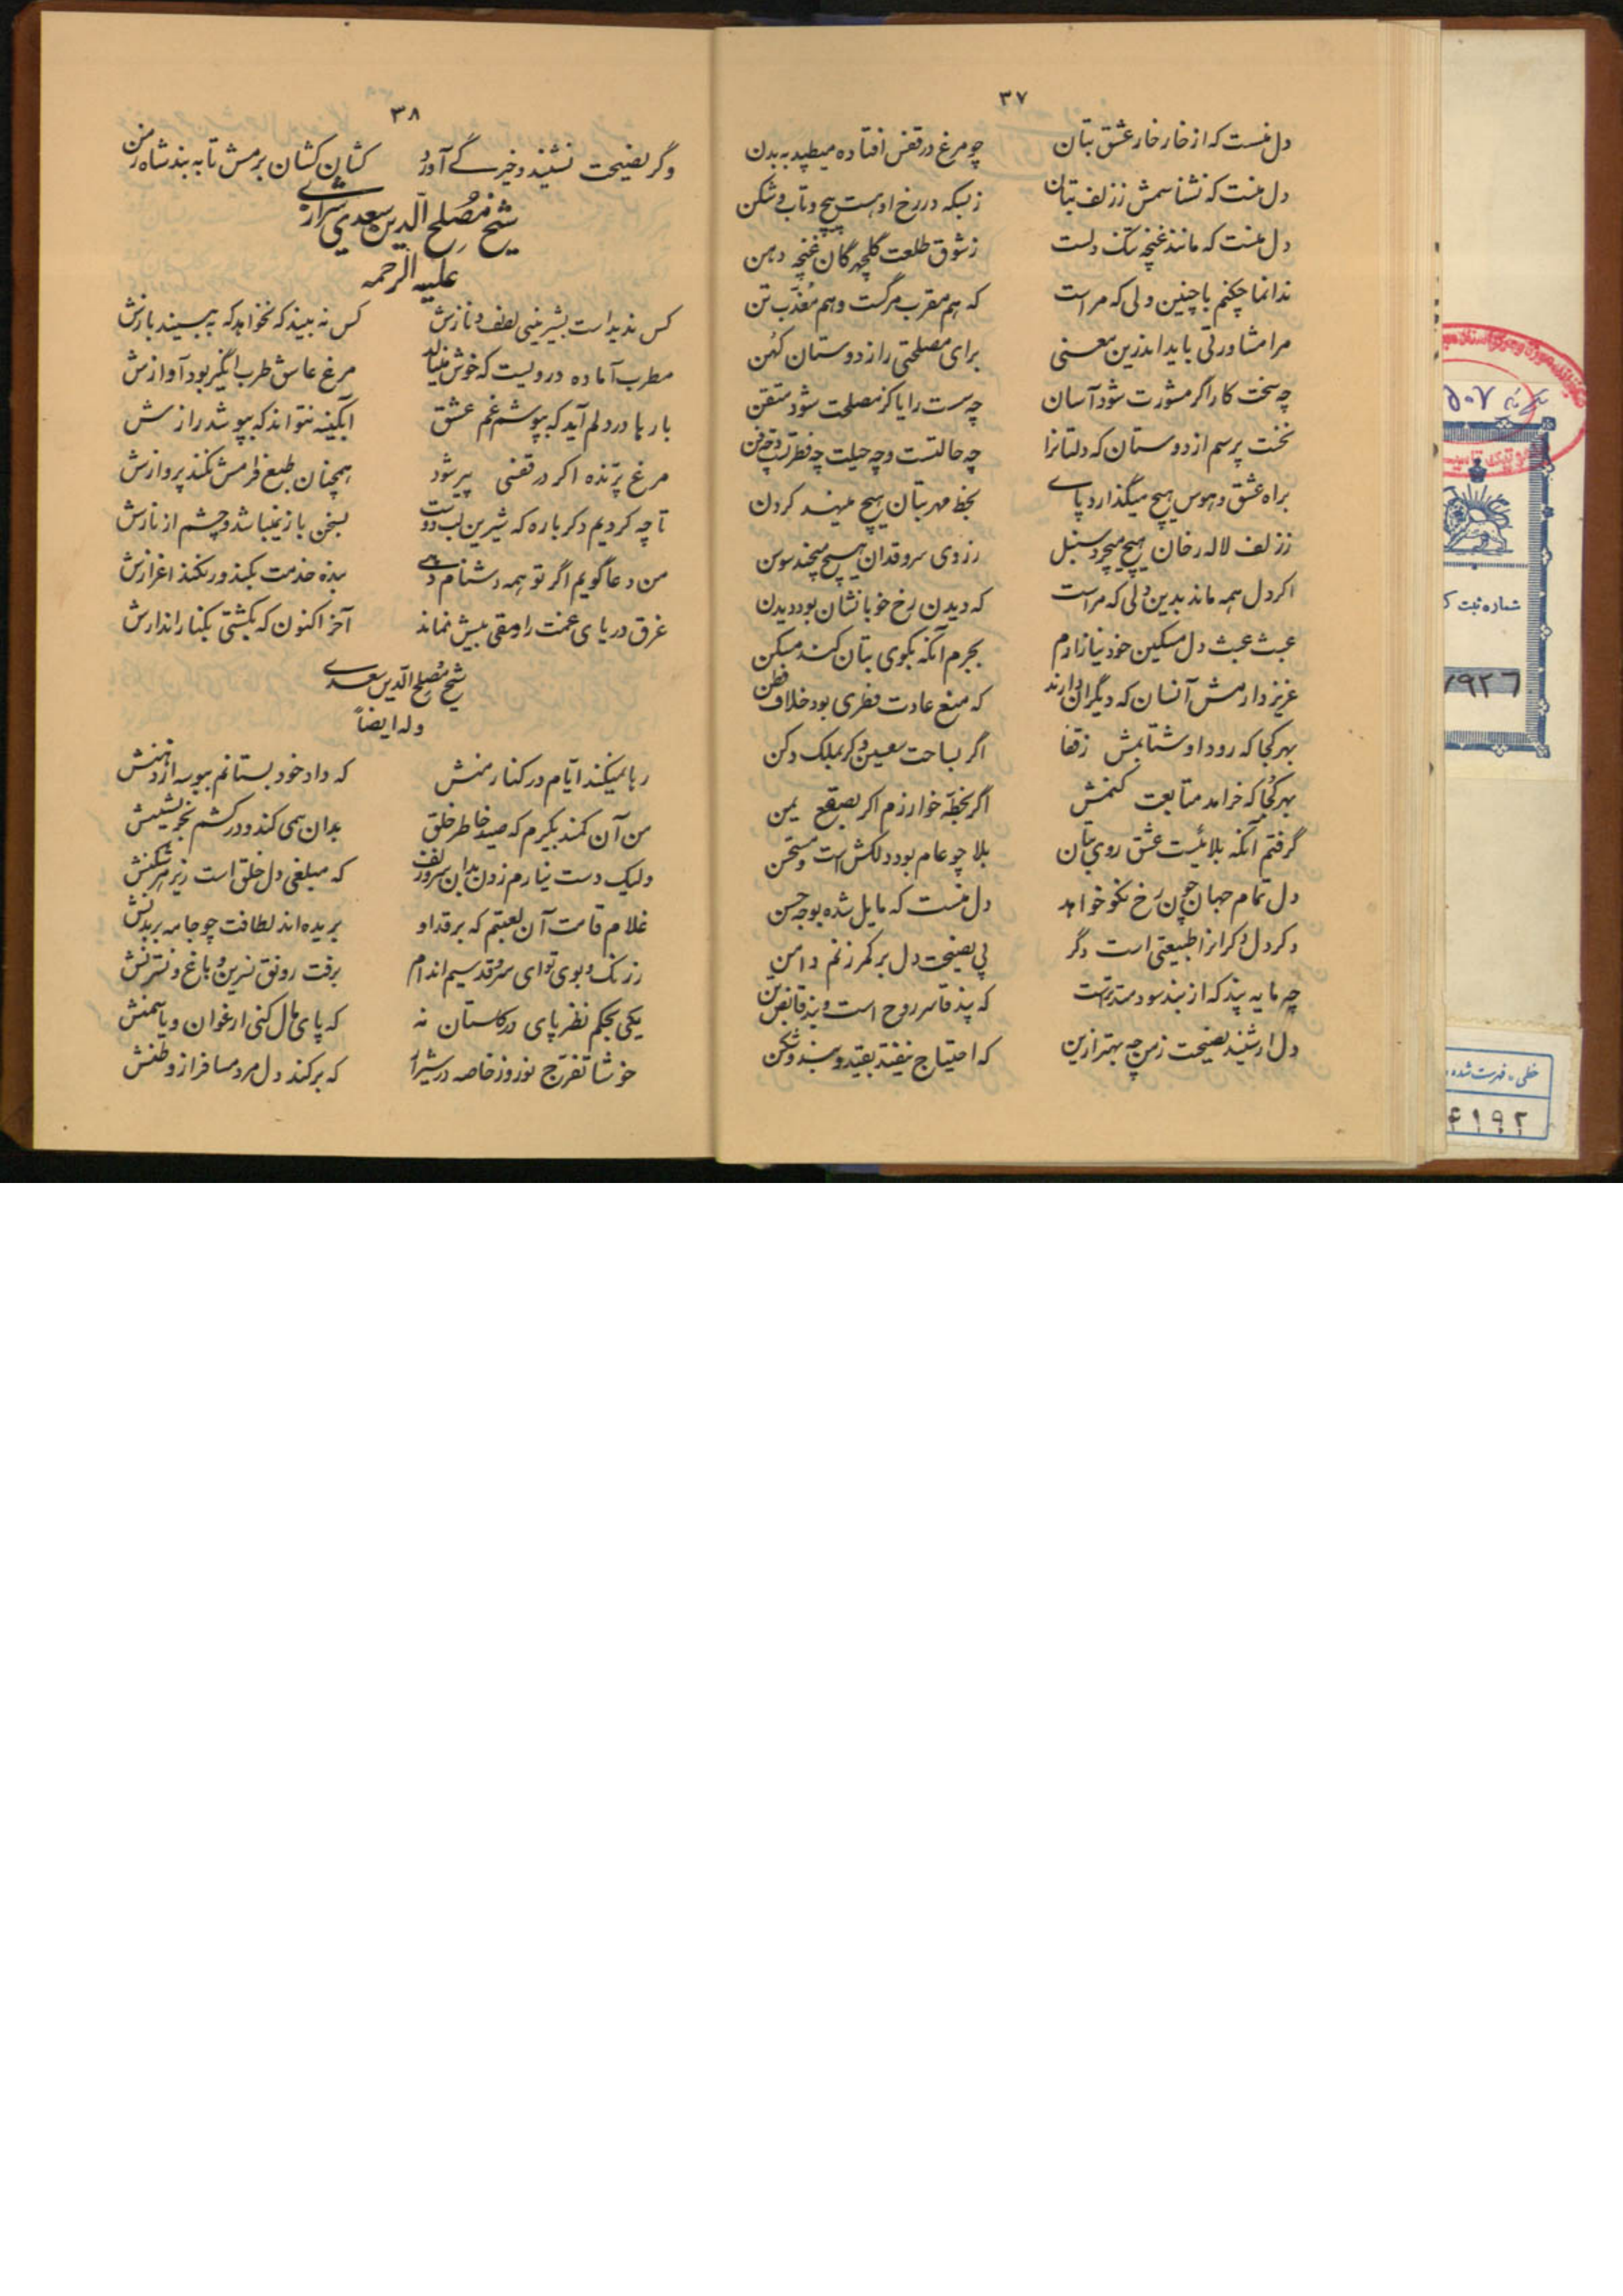 ۳۷
دل منست که از خار خار عشق بتان چو مرغ در قفس افتاده میطپد به بدن
دل منست که نشناسمش ز زلف بتان ز بسکه در رخ او هست پیچ و تاب و شکن
دل منست که مانند غنچه تنگ دلست ز شوق طلعت گلچهرگان غنچه دهن
ندانما چکنم با چنین دلی که مراست که هم مقرب مرگست و هم معذب تن
مرا مشاورتی باید اندرین معنی برای مصلحتی را ز دوستان کهن
چه سخت کار اگر مشورت شود آسان چه سست رایا کز مصلحت شود متقن
نخست پرسم از دوستان که دلتانرا چه حالتست و چه حیلت چه فطرتست و چه فن
براه عشق و هوس هیچ میگذارد پای بخط مهر بتان هیچ مینهد گردن
ز زلف لاله رخان هیچ میچرد سنبل ز روی سروقدان هیچ میچند سوسن
اگر دل همه ماند بدین دلی که مراست که دیدن رخ خوبانشان بود دیدن
عبث عبث دل مسکین خود نیازارم بجرم آنکه بکوی بتان کند مسکن
عزیز دارمش آنسان که دیگران دارند که منع عادت فطری بود خلاف فطن
بهر کجا که رود او شتابمش ز قفا اگر بساحت سعین و گر بملک دکن
بهر کجا که خرامد متابعت کنمش اگر بخطه خوارزم اگر بصقع یمن
گرفتم آنکه بلائیست عشق روی بتان بلا چو عام بود دلکش است و مستحسن
دل تمام جهان چون رخ نکو خواهد دل منست که مایل شده بوجه حسن
و گر دل دگرانرا طبیعتی است دگر پی نصیحت دل بر کمر زنم دامن
چه مایه پند که از بند سودمندترست که پند قاسر روح است و بند قابض تن
دل ار شنید نصیحت ز من چه بهتر ازین که احتیاج نیفتد بقید و بند و شکن
۳۸
وگر نصیحت نشنید و خیرگی آورد کشان کشان برمش تا به بند شاه زمن
شیخ مصلح الدین سعدی شیرازی
علیه الرحمه
کس ندیداست بشیرینی لطف و نازش کس نه بیند که نخواهد که ببیند بازش
مطرب آماده دردیست که خوش مینالد مرغ عاشق طرب انگیز بود آوازش
بارها در دلم آید که بپوشم غم عشق آبگینه نتواند که بپوشد رازش
مرغ پرنده اگر در قفسی پیر شود همچنان طبع فرامش نکند پروازش
تا چه کردیم دگر باره که شیرین لب دوست بسخن باز نمیباشد و چشم از نازش
من دعا گویم اگر تو همه دشنام دهی بنده خدمت بکند ور نکند اعزازش
غرق دریای غمت را رمقی بیش نماند آخر اکنون که بکشتی بکنار اندازش
شیخ مصلح الدین سعدی
وله ایضاً
رها نمیکند ایام در کنار منش که داد خود بستانم ببوسه از دهنش
من آن کمند بگیرم که صید خاطر خلق بدان همی کند و در کشم بخویشتنش
ولیک دست نیارم زدن بدان سر زلف که مبلغی دل خلق است زیر هر شکنش
غلام قامت آن لعبتم که بر قد او بریده اند لطافت چو جامه بر بدنش
ز رنگ و بوی تو ای سروقد سیم اندام برفت رونق نسرین و باغ و نسترنش
یکی بحکم نظر پای در گلستان نه که پای مال کنی ارغوان و یاسمنش
خوشا تفرج نوروز خاصه در شیراز که برکند دل مرد مسافر از وطنش
شماره ثبت ک
۷۹۲۶
خطی - فهرست شده
۴۱۹۲